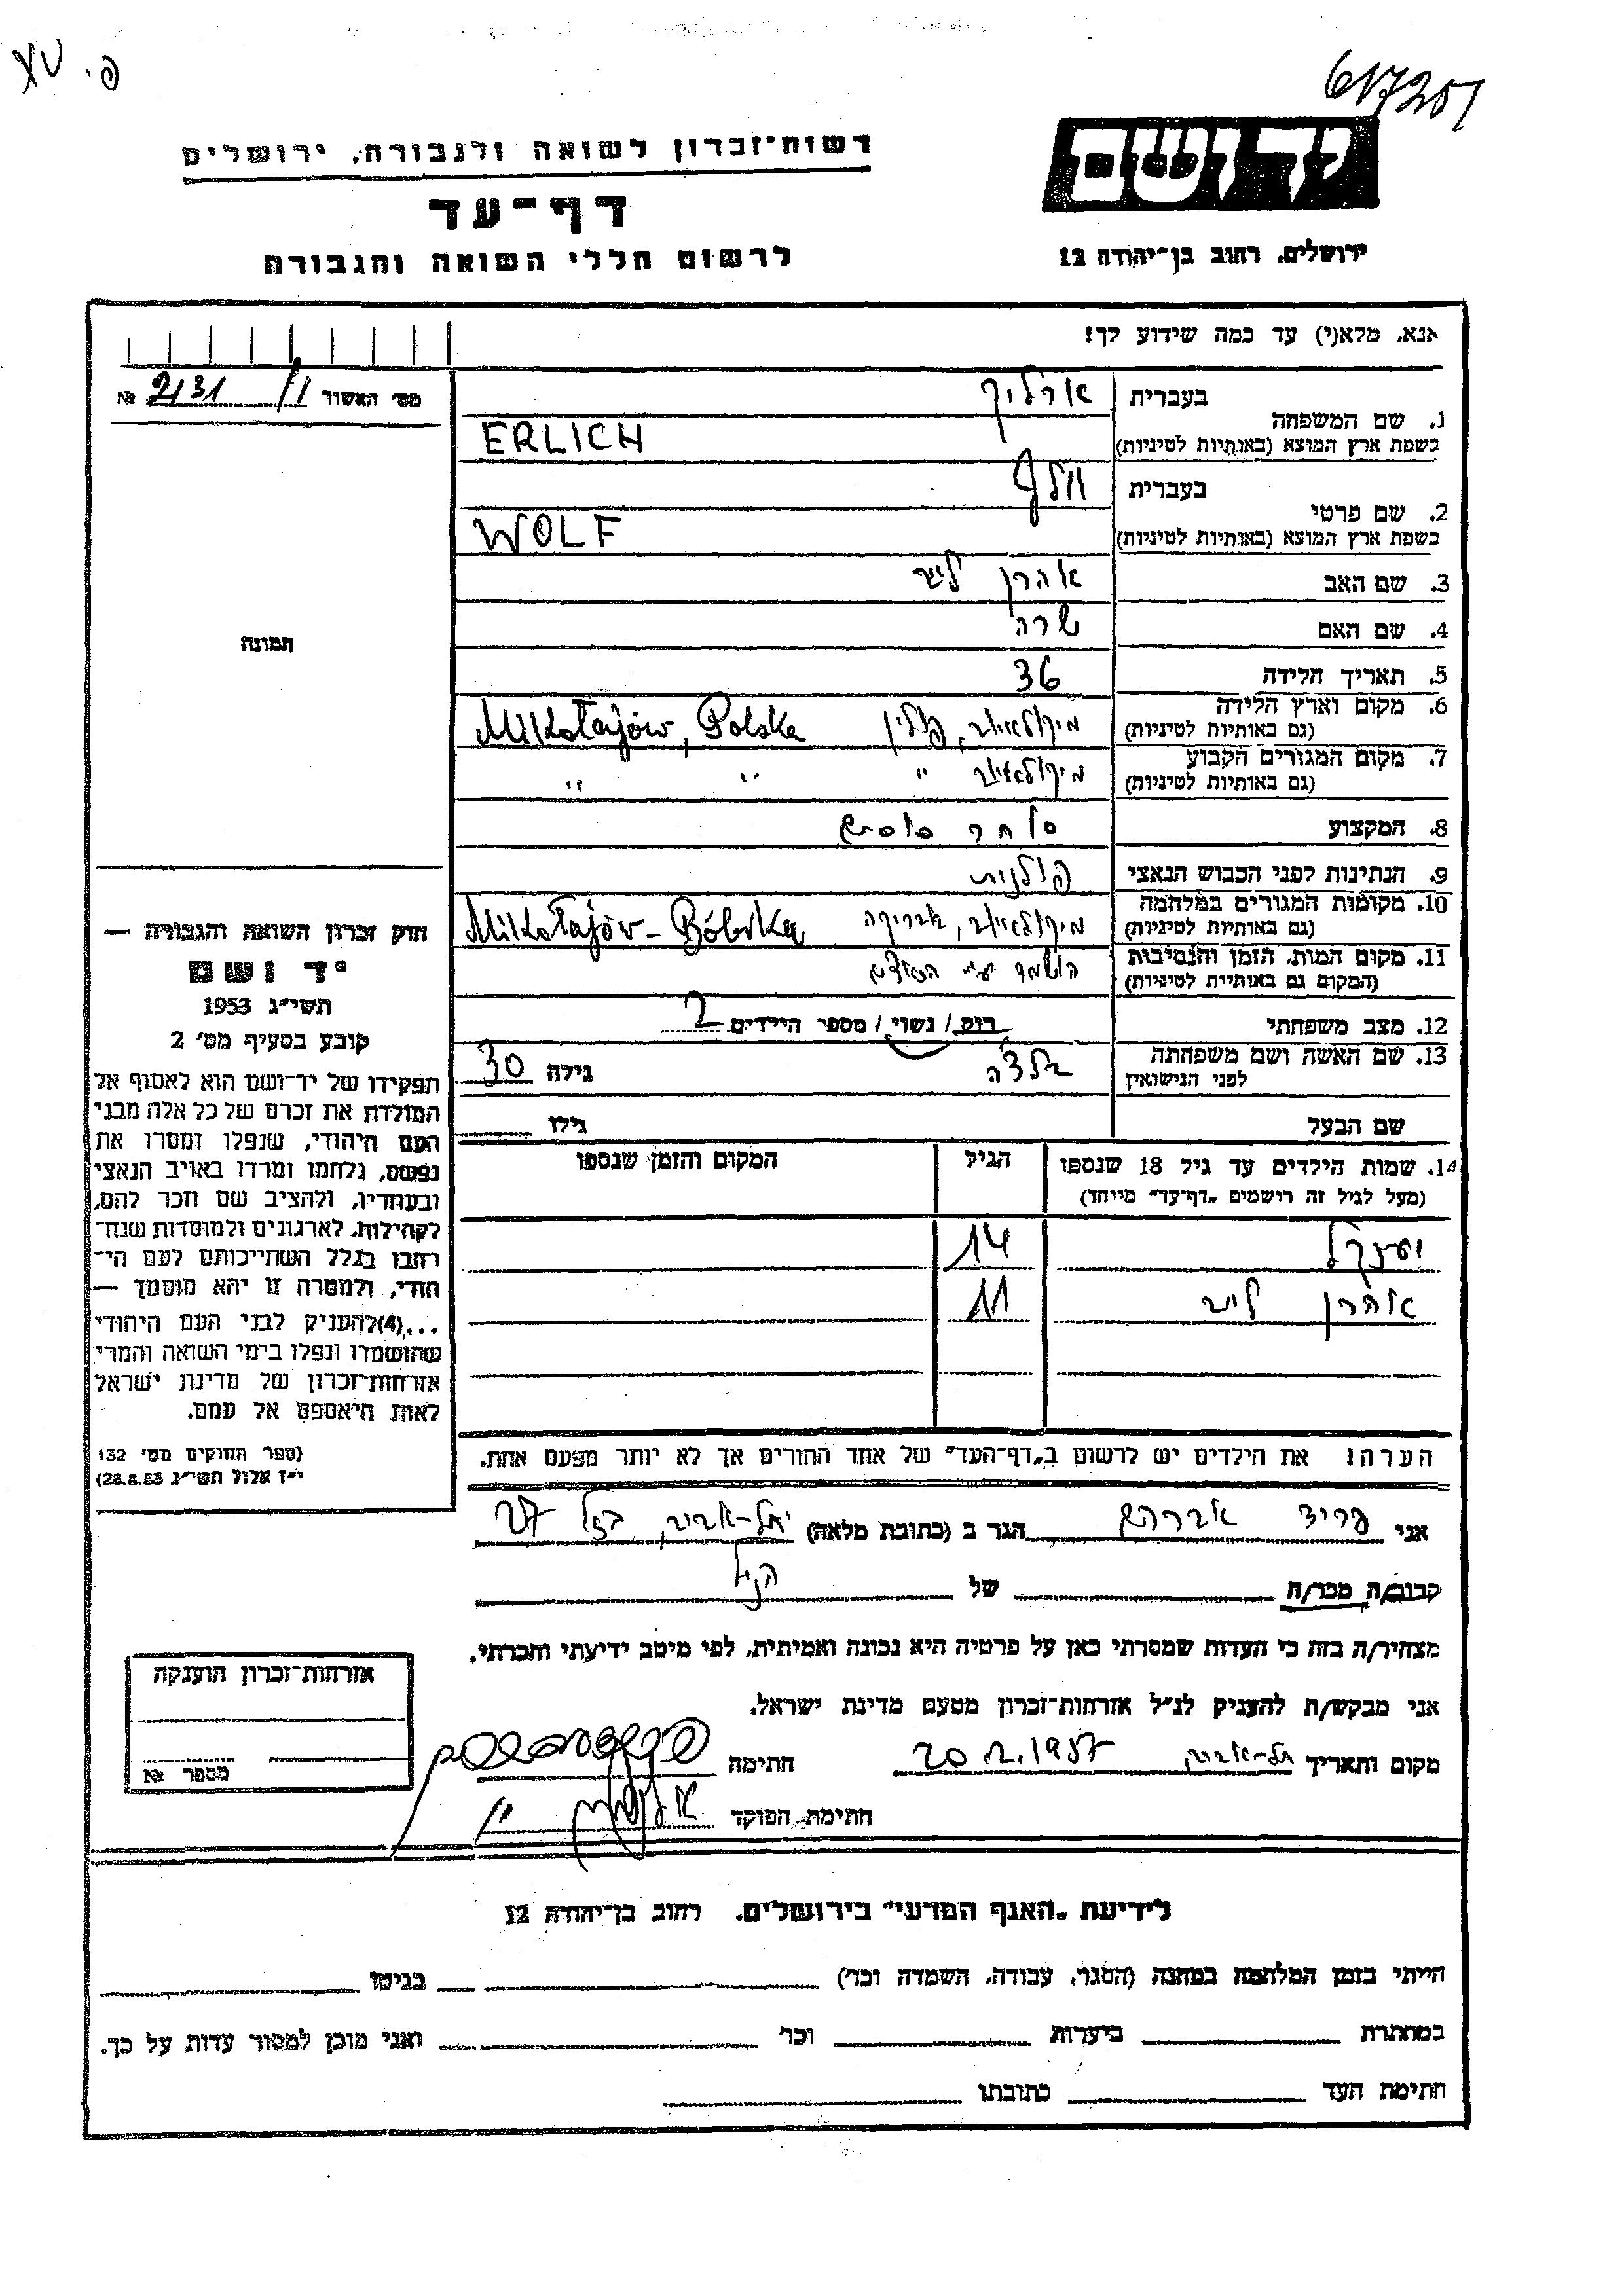 617201
יד ושם
רשות־זכרון לשואה ולגבורה, ירושלים
דף־עד
לרשום חללי השואה והגבורה
ירושלים, רחוב בן־יהודה 12
אנא, מלא(י) עד כמה שידוע לך!
מס׳ האשור 11/ 2131 №
1. שם המשפחה
בעברית ארליך
בשפת ארץ המוצא (באותיות לטיניות) ERLICH
2. שם פרטי
בעברית וולף
בשפת ארץ המוצא (באותיות לטיניות) WOLF
3. שם האב אהרן לייב
4. שם האם שרה
5. תאריך הלידה 36
6. מקום וארץ הלידה (גם באותיות לטיניות) מיקולאיוב, פולין Mikołajów, Polska
7. מקום המגורים הקבוע (גם באותיות לטיניות) מיקולאיוב " " "
8. המקצוע סוחר סוסים
9. הנתינות לפני הכבוש הנאצי פולנית
10. מקומות המגורים במלחמה (גם באותיות לטיניות) מיקולאיוב, Mikołajów - Bóbrka
11. מקום המות, הזמן והנסיבות (המקום גם באותיות לטיניות) הושמד ע״י הנאצים
12. מצב משפחתי רוק / נשוי / מספר הילדים 2
13. שם האשה ושם משפחתה לפני הנישואין גילה 30
שם הבעל גילו
תמונה
חוק זכרון השואה והגבורה —
יד ושם
תשי״ג 1953
קובע בסעיף מס׳ 2
תפקידו של יד־ושם הוא לאסוף אל
המולדת את זכרם של כל אלה מבני
העם היהודי, שנפלו ומסרו את
נפשם, נלחמו ומרדו באויב הנאצי
ובעוזריו, ולהציב שם וזכר להם,
לקהילות, לארגונים ולמוסדות שנח־
רבו בגלל השתייכותם לעם הי־
הודי, ולמטרה זו יהא מוסמך —
...(4) להעניק לבני העם היהודי
שהושמדו ונפלו בימי השואה והמרי
אזרחות־זכרון של מדינת ישראל
לאות היאספם אל עמם.
(ספר החוקים מס׳ 132
י״ז אלול תשי״ג 28.8.53)
14. שמות הילדים עד גיל 18 שנספו הגיל המקום והזמן שנספו
(מעל לגיל זה רושמים „דף־עד״ מיוחד)
יענקל 14
אהרן לייב 11
הערה! את הילדים יש לרשום ב„דף־העד״ של אחד ההורים אך לא יותר מפעם אחת.
אני פריד אברהם הגר ב (כתובת מלאה) תל-אביב, 27
קרוב/ה מכר/ה של הנ״ל
מצהיר/ה בזה כי העדות שמסרתי כאן על פרטיה היא נכונה ואמיתית, לפי מיטב ידיעתי והכרתי.
אני מבקש/ת להעניק לנ״ל אזרחות־זכרון מטעם מדינת ישראל.
מקום ותאריך תל-אביב 20.2.1957 חתימה
חתימת הפוקד
אזרחות־זכרון הוענקה
מספר №
לידיעת „האגף המדעי״ בירושלים, רחוב בן־יהודה 12
הייתי בזמן המלחמה במחנה (הסגר, עבודה, השמדה וכו׳) בגיטו
במחתרת ביערות וכו׳ ואני מוכן למסור עדות על כך.
חתימת העד כתובתו